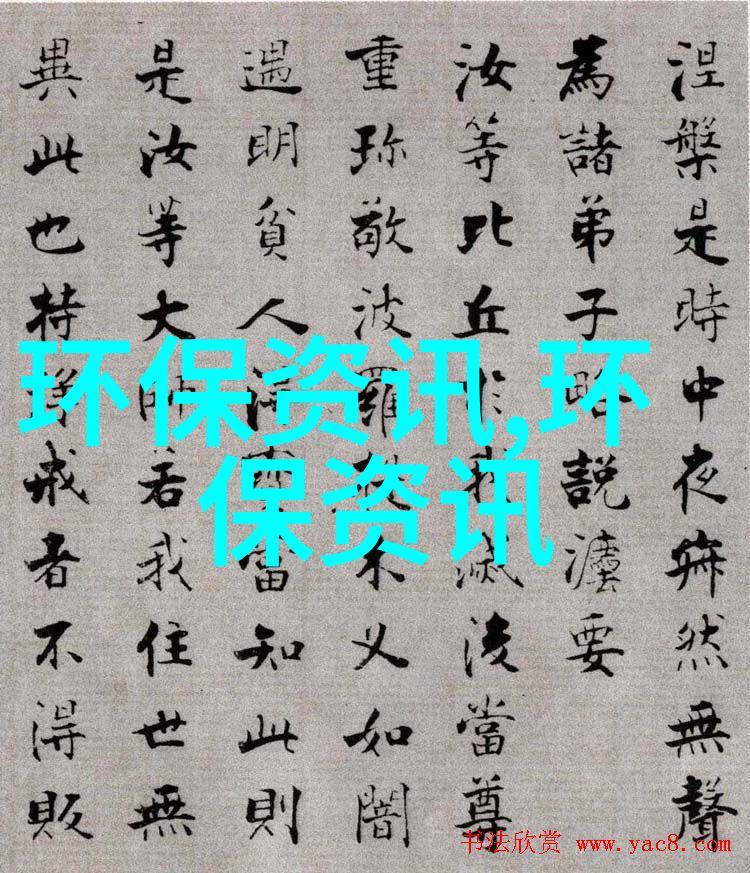 涅槃是時中夜寂然無聲
為諸弟子略說灋要
汝等比丘於我滅後當尊
重珍敬波羅提木叉如闇
遇明貧人得寶當知此則
是汝等大師若我住世無
異此也持淨戒者不得販
环保资讯,环
保资讯
书法欣赏 www.yac8.com